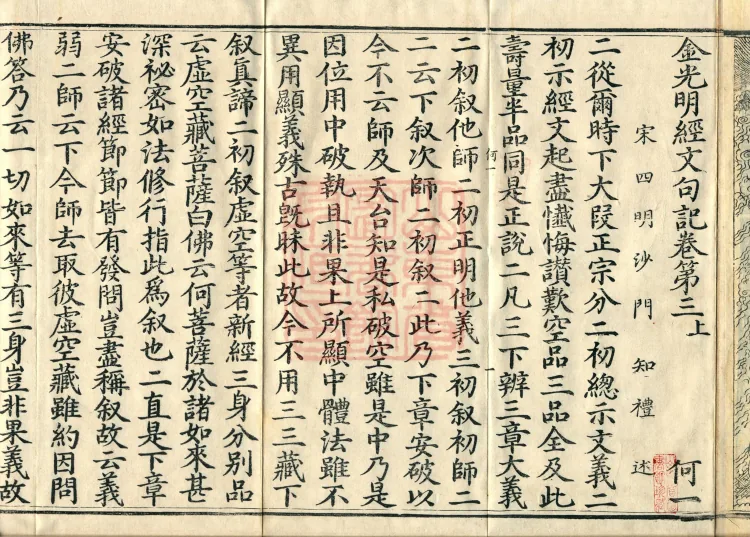 金光明經文句記卷第三上 何一
宋四明沙門知禮述
二從爾時下大段正宗分二初總示文義二
初示經文起盡懺悔讚歎空品三品全及此
壽量半品同是正說二凡三下辨三章大義
何一
二初叙他師二初正明他義三初叙初師二
二云下叙次師二初叙二此乃下章安破以
今不云師及天台知是私破空雖是中乃是
因位用中破執且非果上所顯中體法雖不
異用顯義殊古旣昧此故今不用三三藏下
叙眞諦二初叙虛空等者新經三身分別品
云虛空藏菩薩白佛云何菩薩於諸如來甚
深祕密如法修行指此爲叙也二直是下章
安破諸經節節皆有發問豈盡稱叙故云義
弱二師云下今師去取彼虛空藏雖約因問
佛答乃云一切如來等有三身豈非果義故